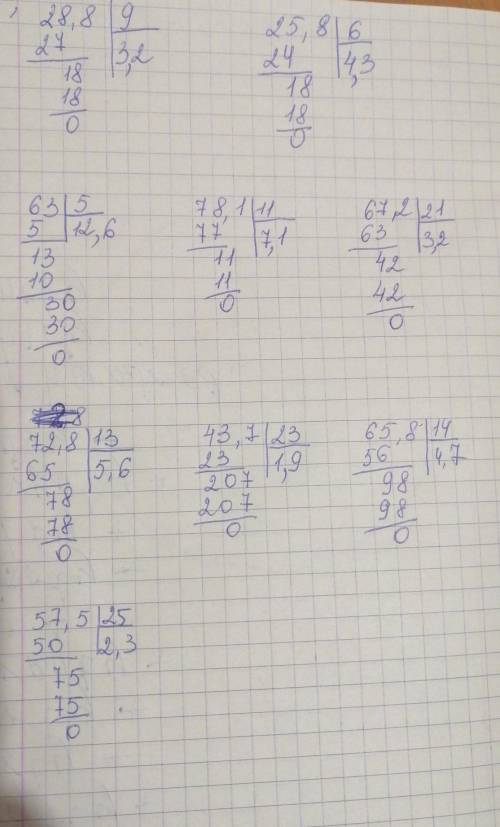 28,8 | 9
27 | 3,2
18
18
0
25,8 | 6
24 | 4,3
18
18
0
63 | 5
5 | 12,6
13
10
30
30
0
78,1 | 11
77 | 7,1
11
11
0
67,2 | 21
63 | 3,2
42
42
0
72,8 | 13
65 | 5,6
78
78
0
43,7 | 23
23 | 1,9
207
207
0
65,8 | 14
56 | 4,7
98
98
0
57,5 | 25
50 | 2,3
75
75
0